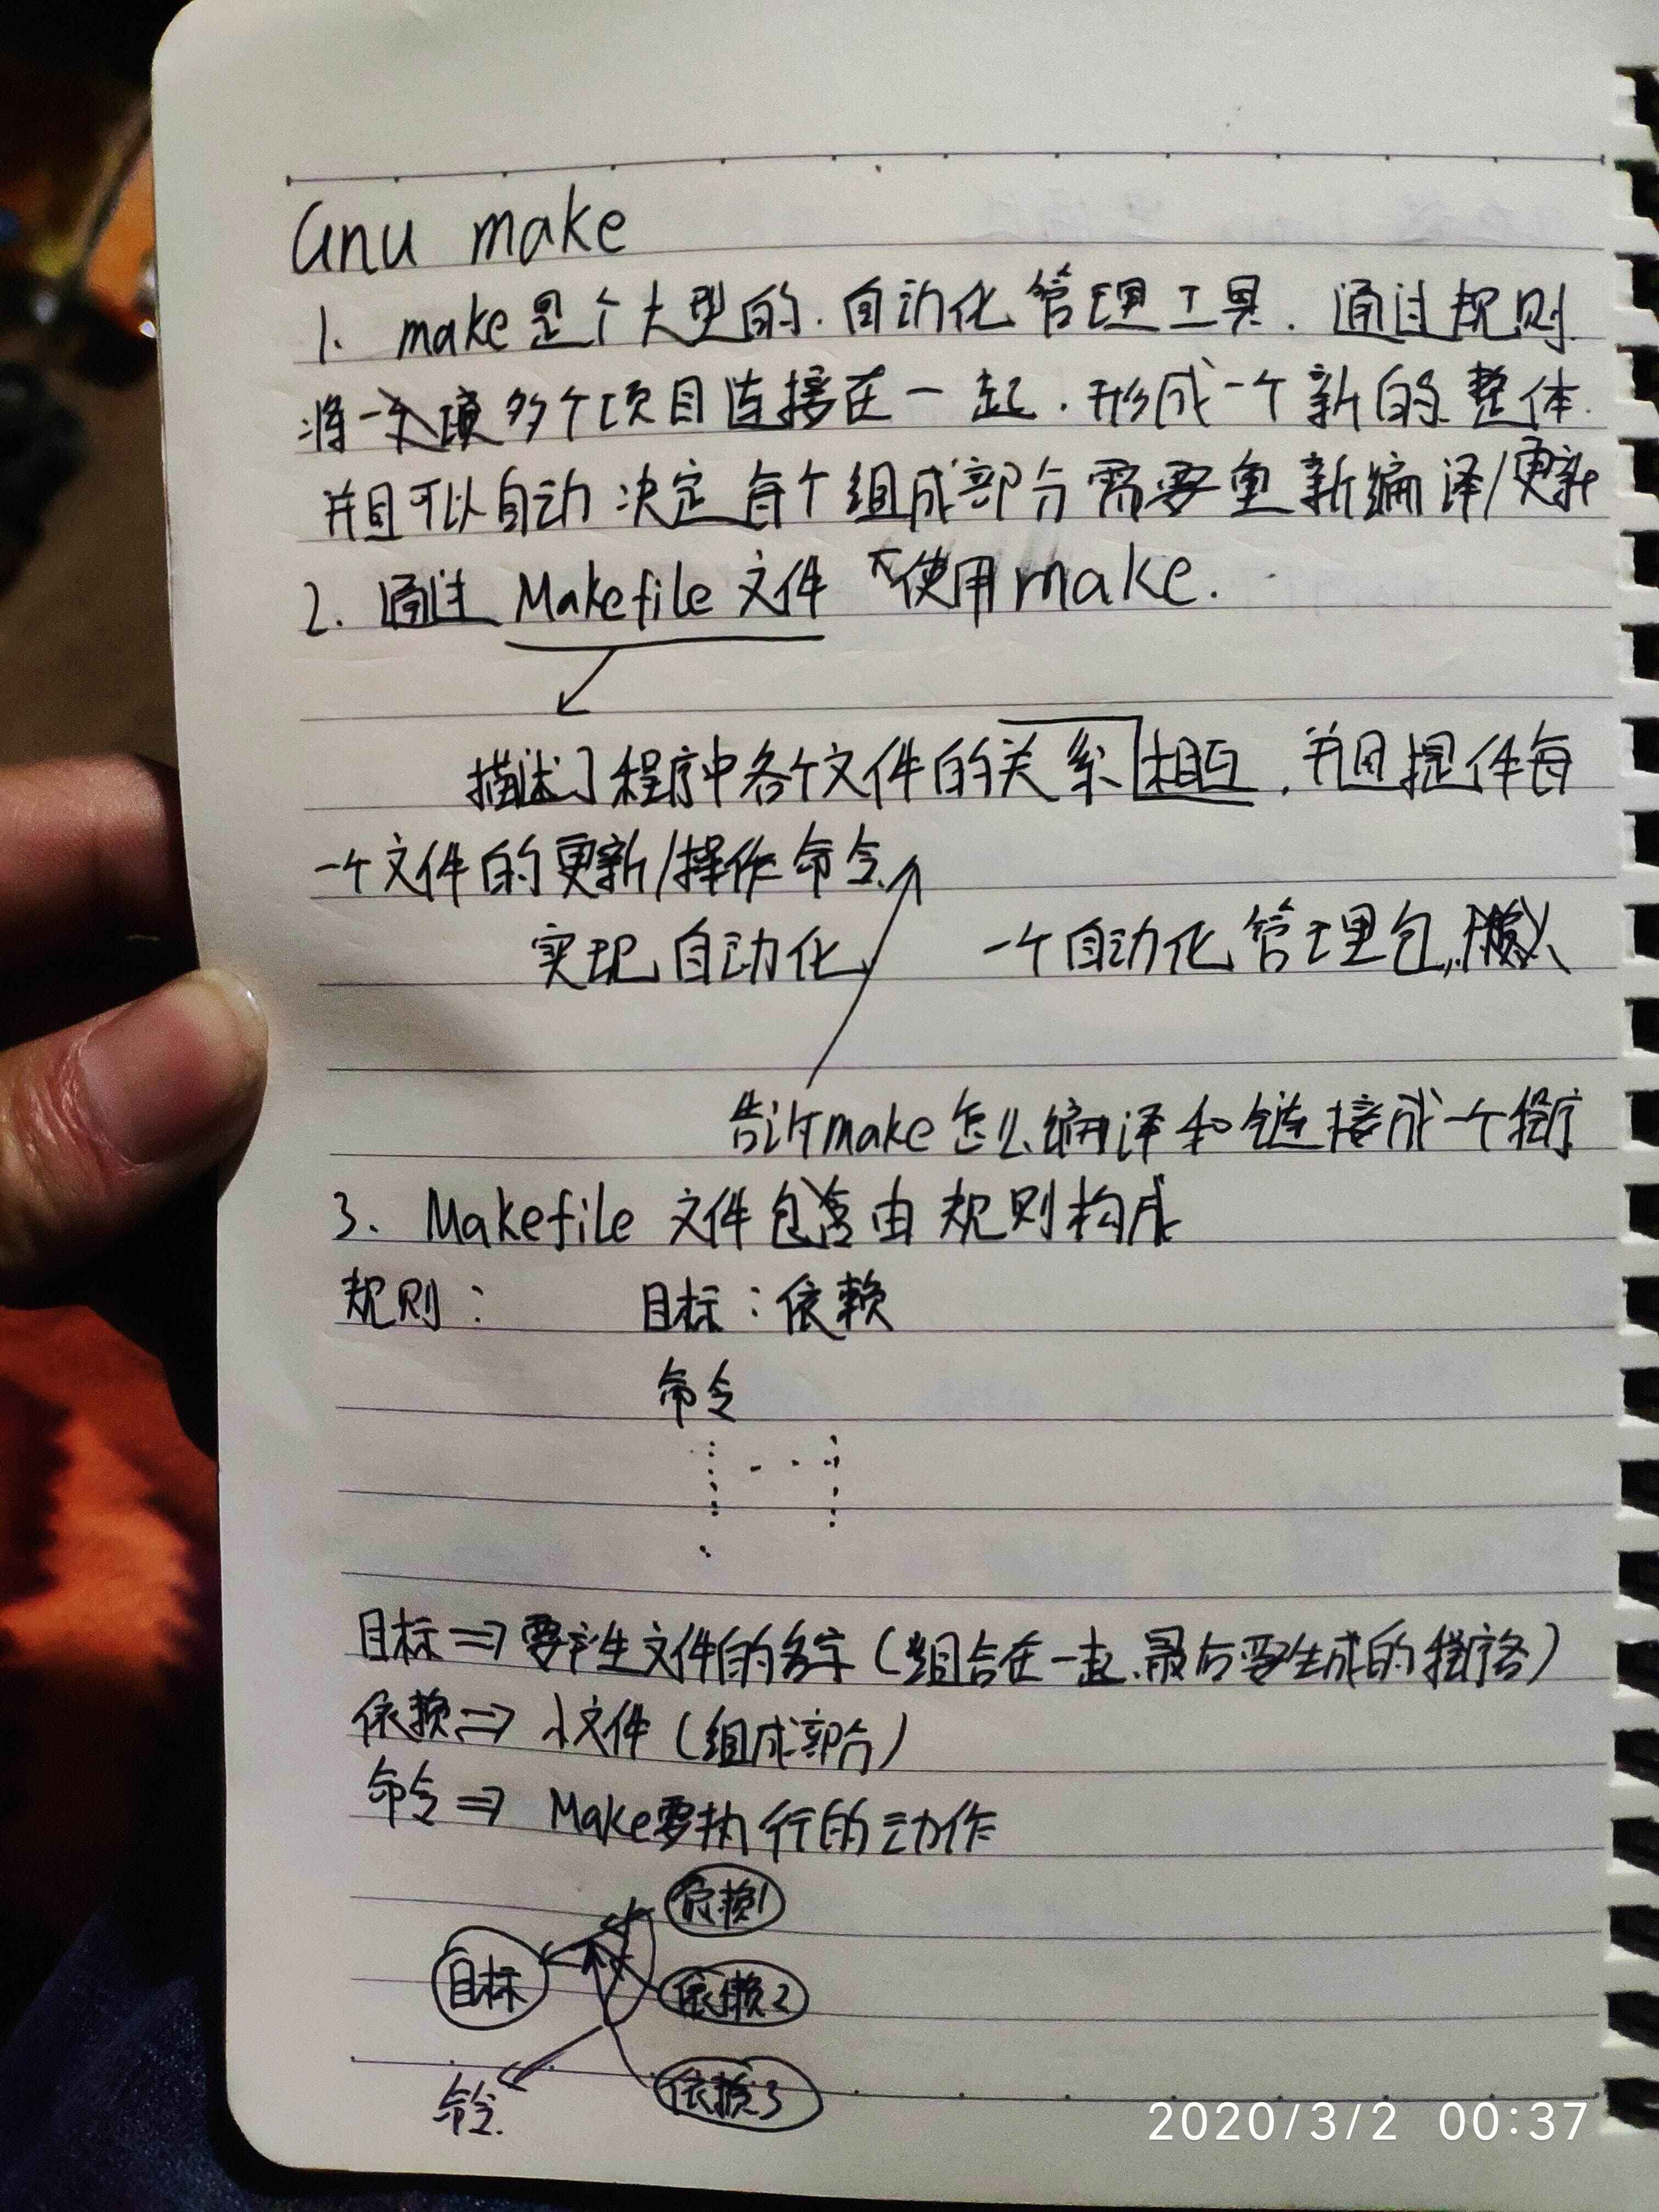 Gnu make
1. make是个大型的.自动化管理工具.通过规则
将一多个项目连接在一起.形成一个新的整体.
并且可以自动决定每个组成部分需要重新编译/更新
2. 通过 Makefile 文件 使用make.
描述了程序中各个文件的关系相互,并且提件每
一个文件的更新/操作命令
实现自动化 一个自动化管理包
告许make怎么编译和链接成一个程序
3. Makefile 文件包含由规则构成
规则: 目标:依赖
命令
目标⇒要产生文件的名字(组合在一起、最后要生成的程序名)
依赖⇒小文件(组成部分)
命令⇒ Make要执行的动作
依赖1
目标
依赖2
依赖3
命令.
2020/3/2 00:37